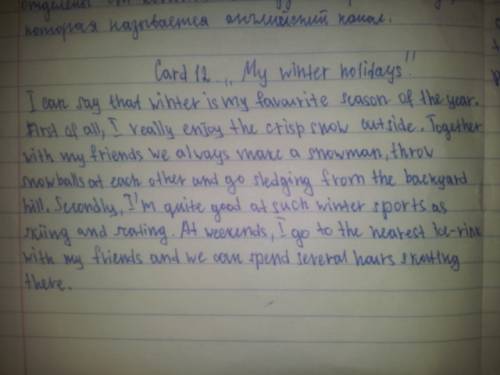 которая называется английский канал.
Card 12 „My winter holidays"
I can say that winter is my favourite season of the year.
First of all, I really enjoy the crisp snow outside. Together
with my friends we always make a snowman, throw
snowballs at each other and go sledging from the backyard
hill. Secondly, I'm quite good at such winter sports as
skiing and scating. At weekends, I go to the nearest Ice-rink
with my friends and we can spend several hours skating
there.